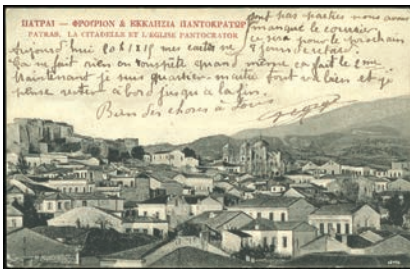 ΠΑΤΡΑΙ — ΦΡΟΥΡΙΟΝ & ΕΚΚΛΗΣΙΑ ΠΑΝΤΟΚΡΑΤΩΡ
PATRAS, LA CITADELLE ET L'EGLISE PANTOCRATOR
sont pas parties nous avons
manqué le courrier
ce sera pour le prochain
Aujourd'hui mes cartes ne
jours de retard.
Ça ne fait rien on rouspète quand même ça fait le 2me
Maintenant je suis quartier-maître tout va bien et je
pense rester à bord jusqu'à la fin.
Bien des choses à tous